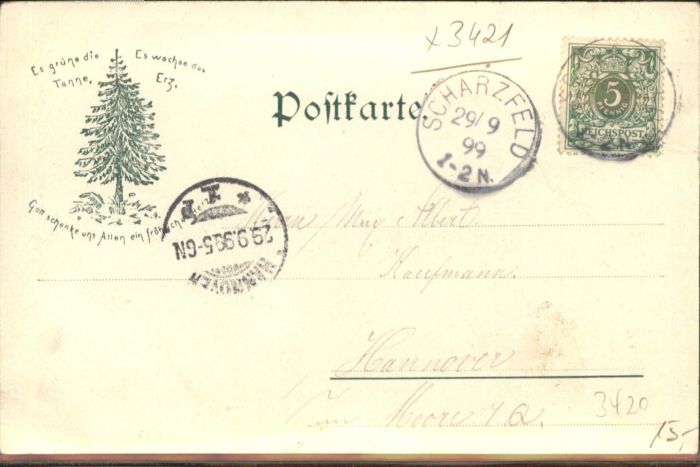 x3421
Es grüne die
Tanne,
Es wachse das
Erz,
Gott schenke uns Allen ein fröhliches Herz
Postkarte.
SCHARZFELD
29/9
99
1-2N.
5
REICHSPOST
2N.
HANNOVER
29.9.99.5-6N
1
Herrn Max Albert
Kaufmann
Hannover
Im Moore
3420
15,-